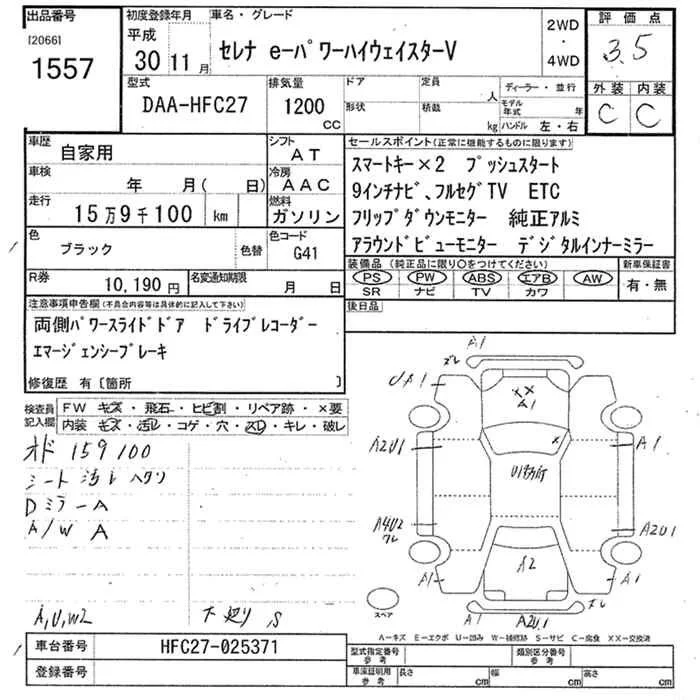 出品番号
[2066]
1557
初度登録年月
平成
30 11月
車名・グレード
セレナ e-パワーハイウェイスターV
2WD
・
4WD
評価点
3.5
外装 内装
C C
型式
DAA-HFC27
排気量
1200
CC
ドア
形状
定員
人
積載
kg
ディーラー・並行
モデル年式 年
ハンドル 左・右
車歴
自家用
シフト
AT
車検
年 月( 日)
冷房
AAC
走行
15万9千100 km
燃料
ガソリン
色
ブラック
色替
色コード
G41
R券
10,190円
名変通知期限
月 日
セールスポイント(正常に機能するものに限ります)
スマートキー×2 プッシュスタート
9インチナビ、フルセグTV ETC
フリップダウンモニター 純正アルミ
アラウンドビューモニター デジタルインナーミラー
装備品(純正品に限り○をつけてください)
PS PW ABS エアB AW
SR ナビ TV カワ
新車保証書
有・無
後日品
注意事項申告欄(不具合内容等は具体的に記入して下さい)
両側パワースライドドア ドライブレコーダー
エマージェンシーブレーキ
修復歴 有〔箇所 〕
検査員記入欄
FW キズ・飛石・ヒビ割・リペア跡・×要
内装 キズ・汚レ・コゲ・穴・スレ・キレ・破レ
オド 159100
シート汚レ ハクリ
Dミラー A
A/W A
A,U,W2
S
A1
ズレ
UA1
XX
A1
A2U1
A1
X
A4U2
ワレ
A2U1
A1
A2
A1
ズレ
A1
A2U1
スペア
A-キズ E-エクボ U-凹み W-補修跡 S-サビ C-腐食 XX-交換済
車台番号
HFC27-025371
登録番号
型式指定番号
参考
類別区分番号
参考
車庫証明用
参考
長さ cm
幅 cm
高さ cm